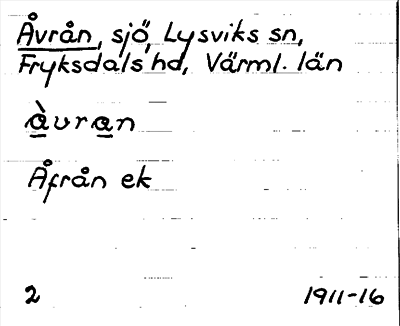 Åvrån, sjö, Lysviks sn,
Fryksdals hd, Värml. län
àvran
Åfrån ek
2 1911-16